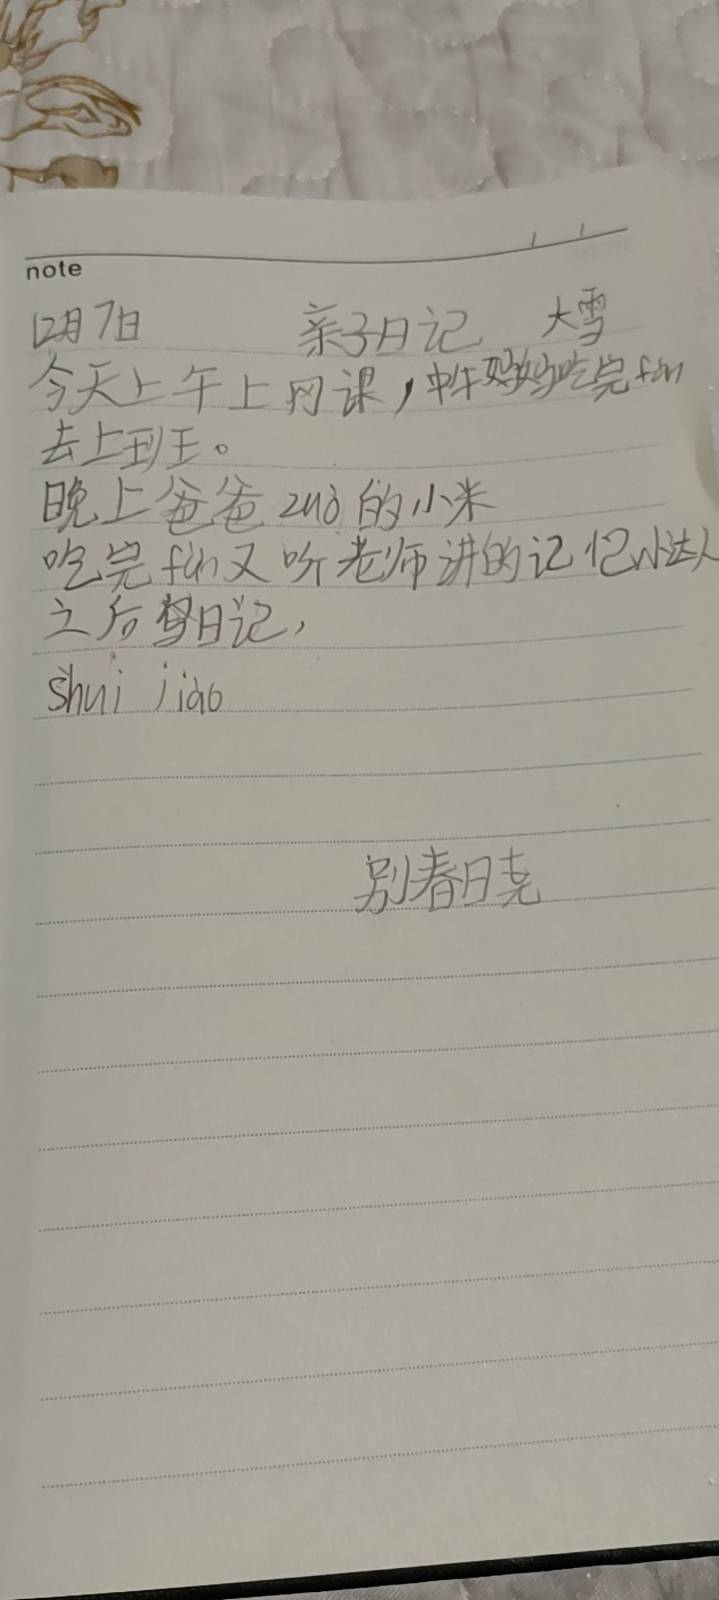 note
12月7日 亲子日记 大雪
今天上午上网课，中午妈妈吃完fàn
去上班。
晚上爸爸zuò的小米
吃完fàn又听老师讲的记忆小达人
之后写日记，
shuì jiào
别春晓